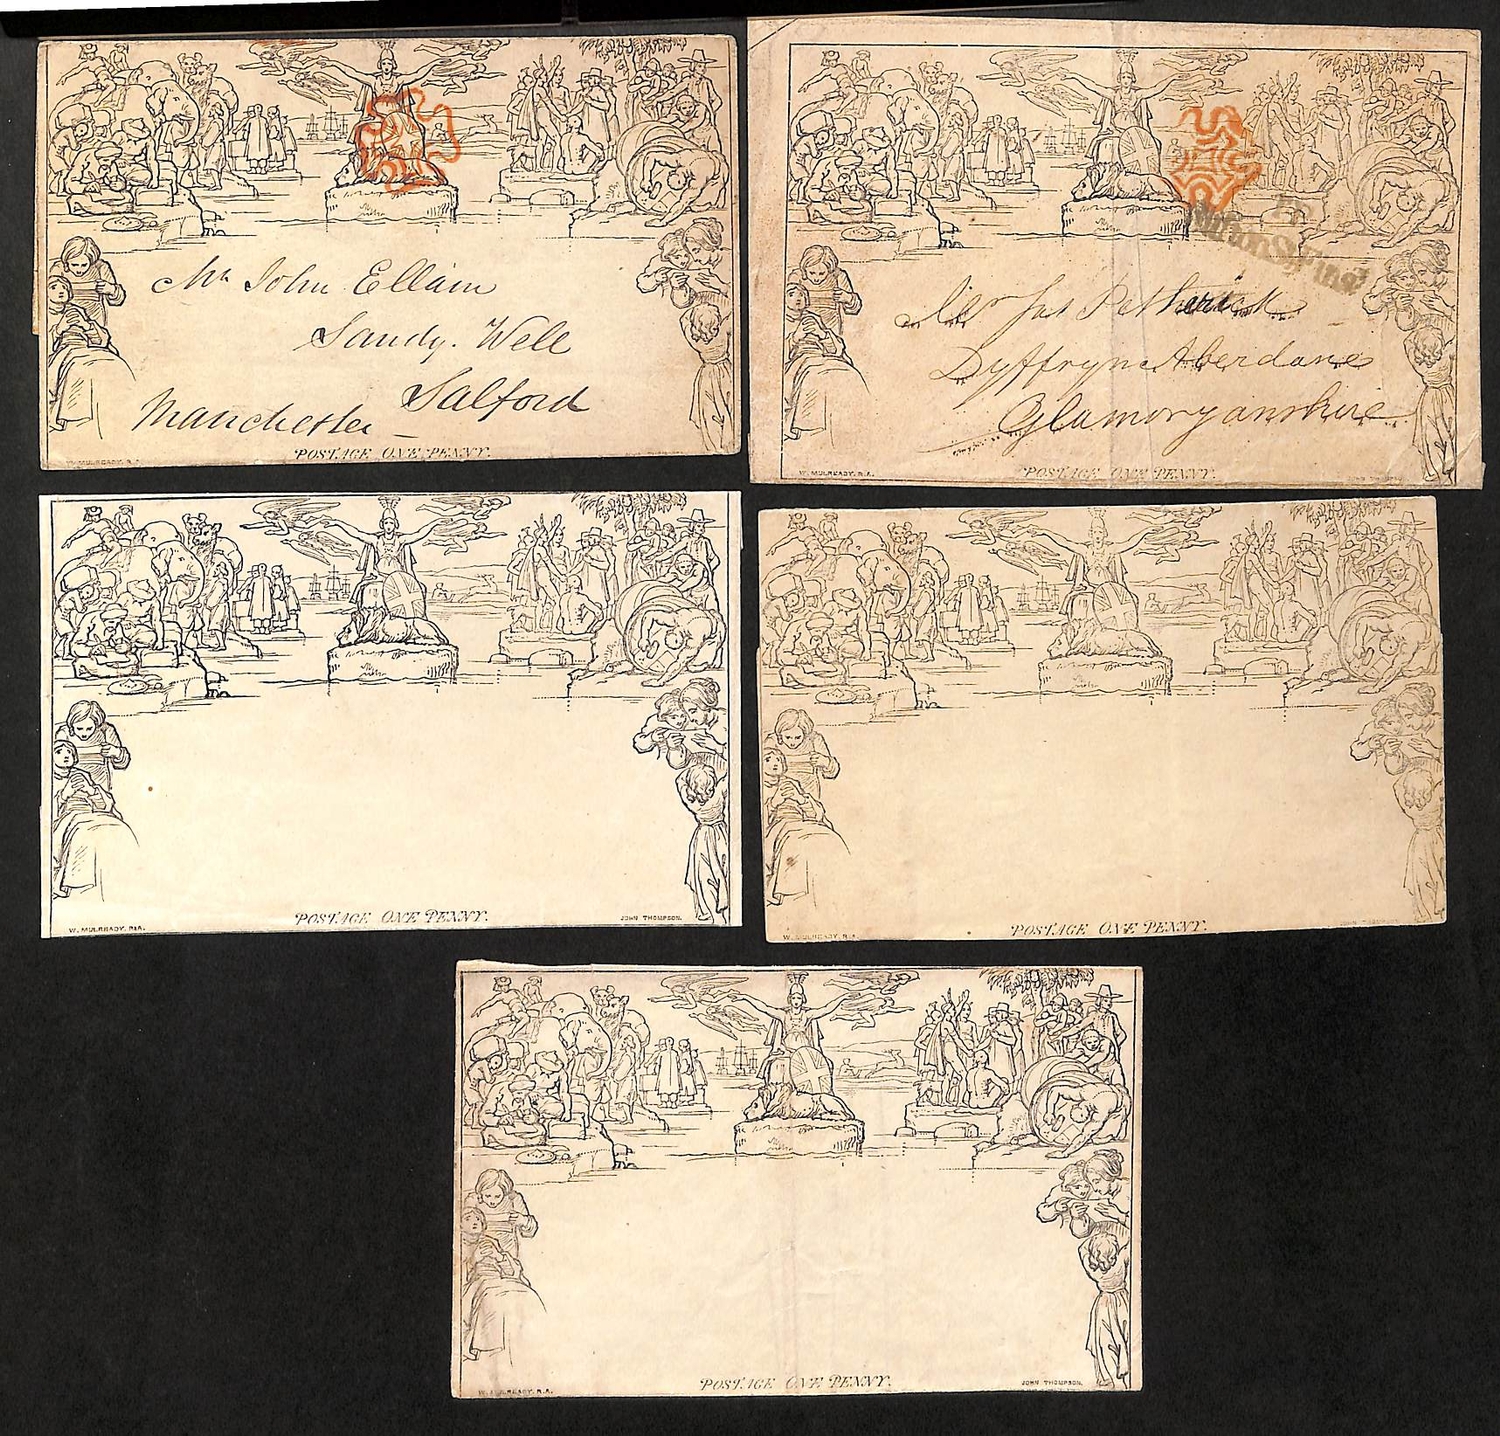 Mr John Ellam
Sandy. Well
Salford
Manchester
POSTAGE ONE PENNY.
W. MULREADY. R.A.
Dyffryn Aberdare
Glamorganshire
W. MULREADY. R.A.
POSTAGE ONE PENNY.
POSTAGE ONE PENNY.
W. MULREADY. R.A.
JOHN THOMPSON.
POSTAGE ONE PENNY.
W. MULREADY. R.A.
JOHN THOMPSON.
POSTAGE ONE PENNY.
W. MULREADY. R.A.
JOHN THOMPSON.